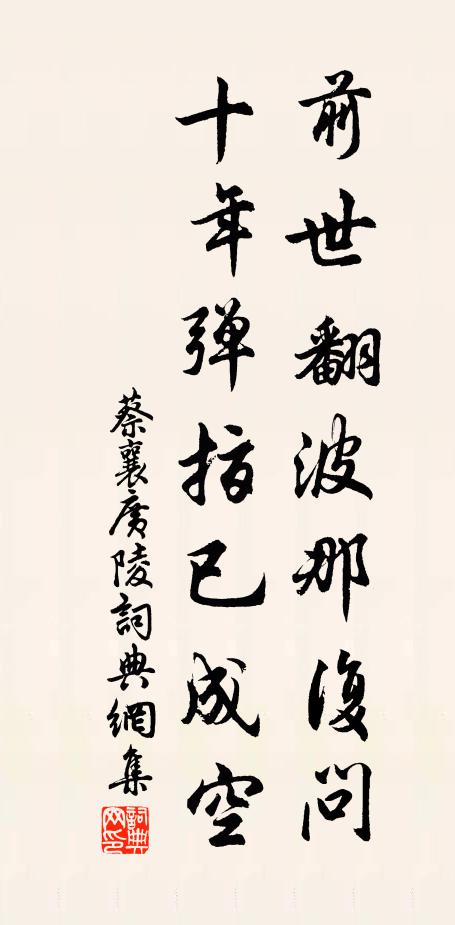 前世翻波那復問
十年弹指已成空
蔡襄廣陵詞典網集
詞典網印